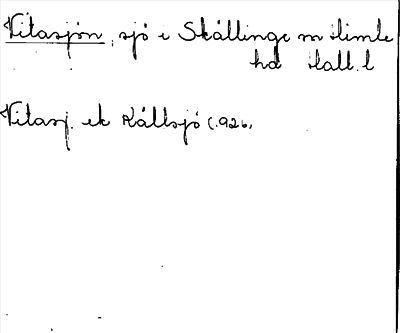 Vitasjön, sjö i Skällinge m Himle
hd Hall. l
Vitasj. ek Källsjö (.926,